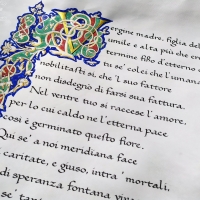 Vergine madre, figlia del
umile e alta più che cre
termine fisso d'etterno c
tu se' colei che l'umana
nobilitasti sì, che 'l suo fattore
non disdegnò di farsi sua fattura.
Nel ventre tuo si raccese l'amore,
per lo cui caldo ne l'etterna pace
così è germinato questo fiore.
Qui se' a noi meridiana face
caritate, e giuso, intra ' mortali,
di speranza fontana viva
se' tan